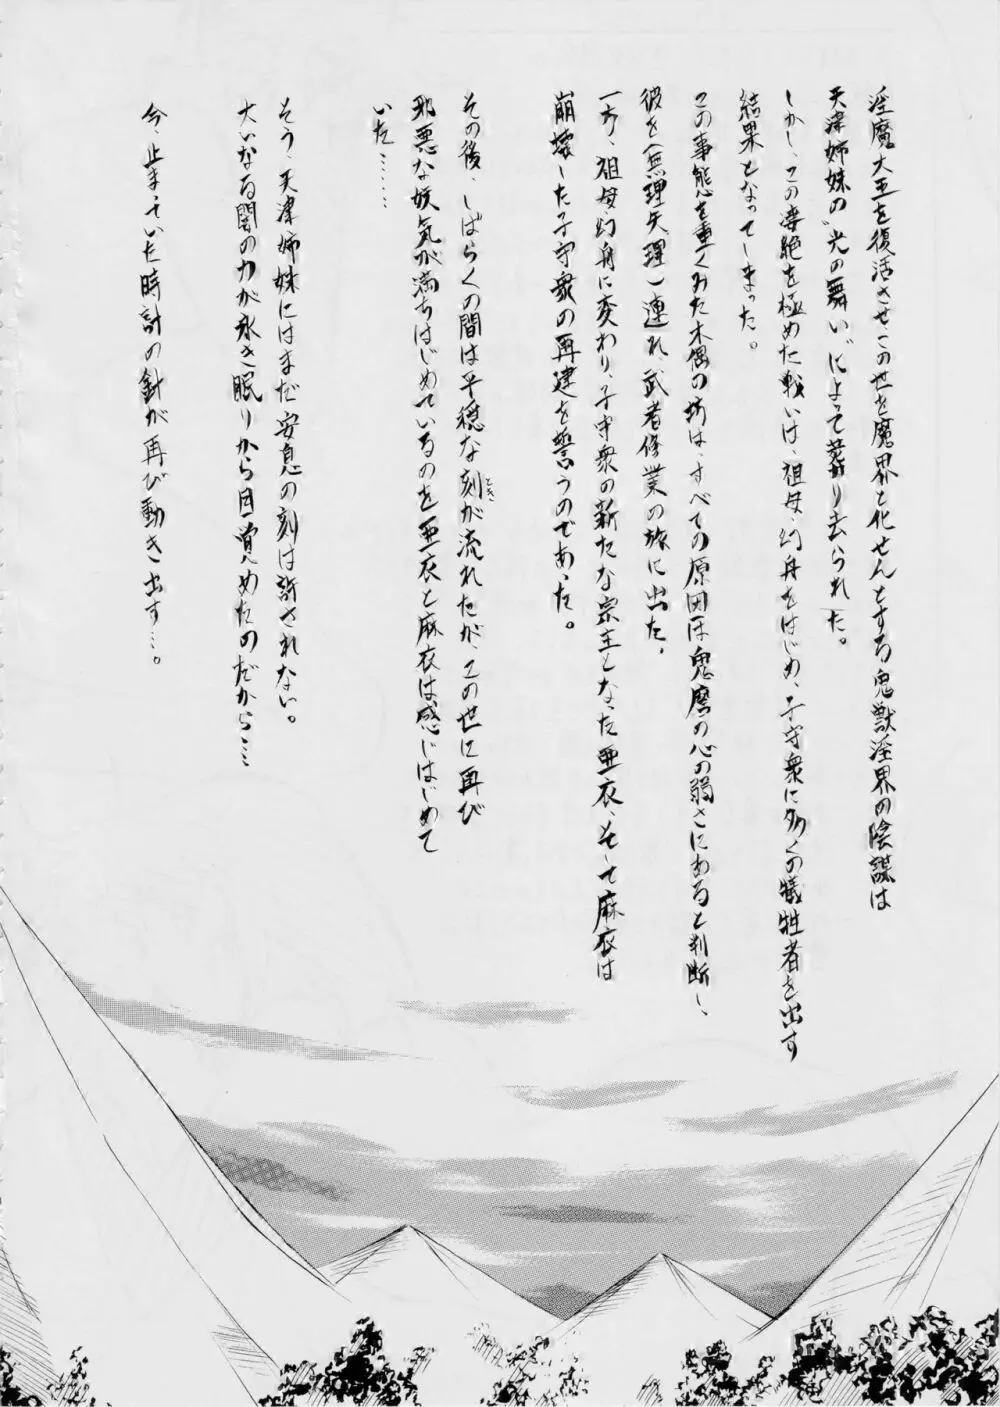 淫魔大王を復活させこの世を魔界と化せんとする鬼獣淫界の陰謀は
天津姉妹の〝光の舞い〟によって葬り去られた。
しかし、この凄絶を極めた戦いは、祖母・幻舟をはじめ、子守衆に多くの犠牲者を出す
結果となってしまった。
この事態を重くみた木偶の坊は、すべての原因は鬼麿の心の弱さにあると判断し、
彼を〈無理矢理〉連れ、武者修業の旅に出た。
一方、祖母・幻舟に変わり、子守衆の新たな宗主となった亜衣、そして麻衣は
崩壊した子守衆の再建を誓うのであった。
その後、しばらくの間は平穏な刻が流れたが、この世に再び
邪悪な妖気が満ちはじめているのを亜衣と麻衣は感じはじめて
いた……
そう、天津姉妹にはまだ安息の刻は許されない。
大いなる闇の力が永き眠りから目覚めたのだから…
今、止まっていた時計の針が再び動き出す…。